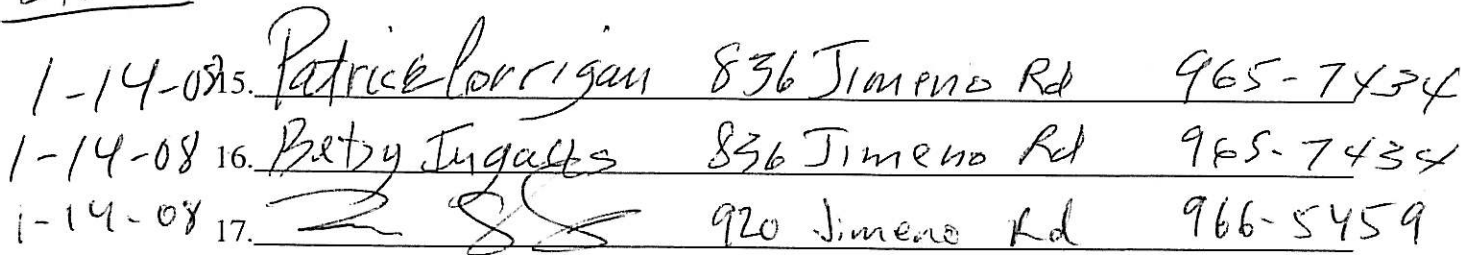 1-14-08 15. Patrick Corrigan 836 Jimeno Rd 965-7434
1-14-08 16. Betsy Ingalls 836 Jimeno Rd 965-7434
1-14-08 17. 920 Jimeno Rd 966-5459